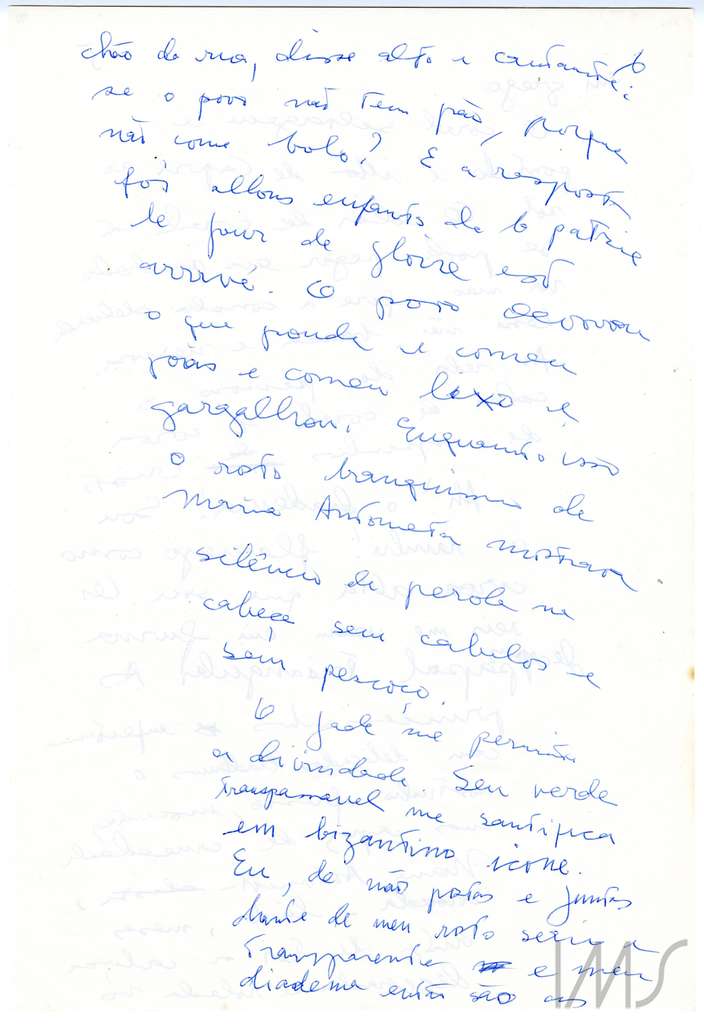 6
chão da rua, disse alto e cantante:
se o povo não tem pão, porque
não come bolo? E a resposta
foi allons enfants de la patrie
le jour de gloire est
arrivé. O povo devorou
o que pande e comeu
joias e comeu lixo e
gargalhou. Enquanto isso
o rosto branquissimo de
Maria Antonieta mostrava
silêncio de perola na
cabeça sem cabelos e
sem pescoço.
O jade me permite
a divindade. Seu verde
transpassavel me santifica
em bizantino icone.
Eu, de mãos postas e juntas
diante de meu rosto seria
transparente e meu
diadema então são as
IMS